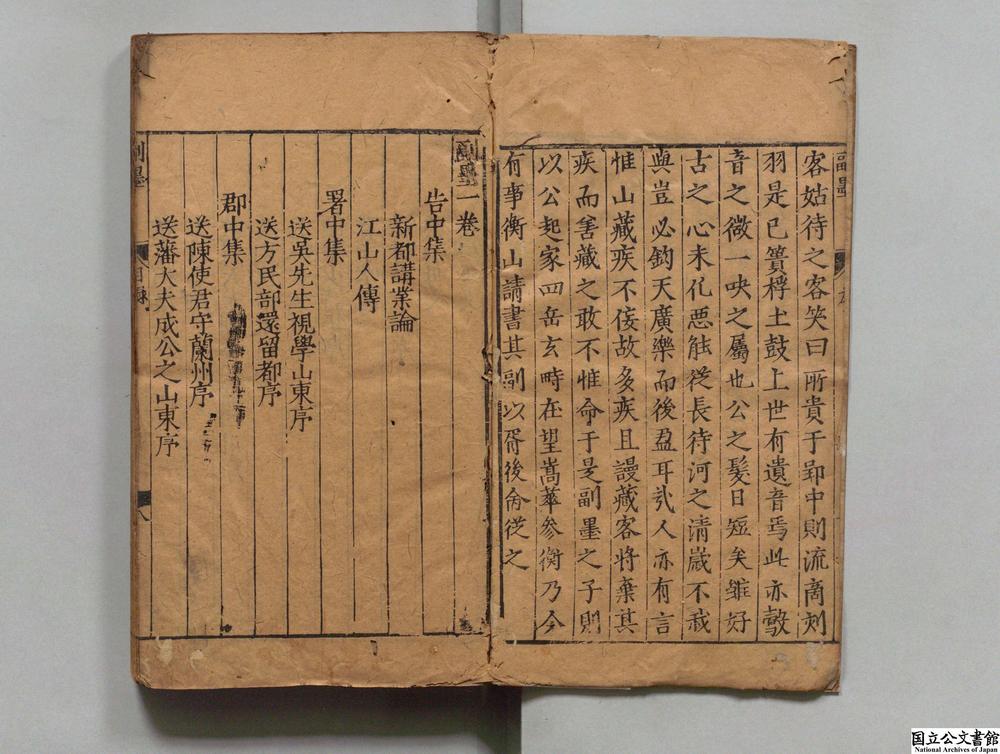 副墨
客姑待之客笑曰所貴于郢中則流商刻
羽是已蕢桴土鼓上世有遺音焉此亦鷇
音之微一吷之屬也公之髮日短矣雖好
古之心未化惡能從長待河之清歲不我
與豈必鈞天廣樂而後盈耳哉人亦有言
惟山藏疾不佞故多疾且謾藏客將棄其
疾而害藏之敢不惟命于是副墨之子則
以公起家四岳玄時在望嵩華參衡乃今
有事衡山請書其副以胥後命從之
副墨一卷
告中集
新都講業論
江山人傳
署中集
送吳先生視學山東序
送方民部還留都序
郡中集
送陳使君守蘭州序
送藩大夫成公之山東序
副墨
目錄
八
国立公文書館
National Archives of Japan